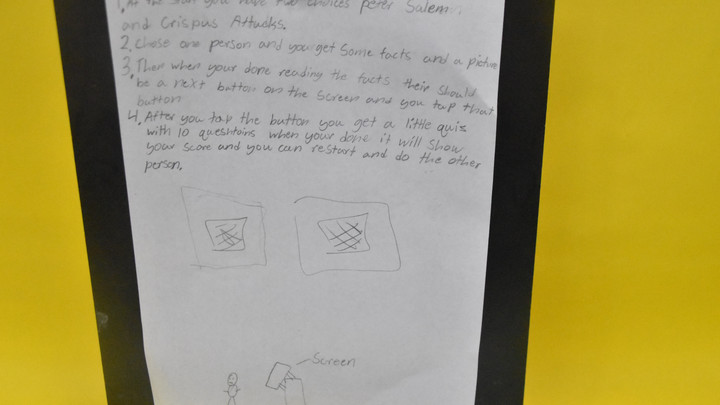 1. At the start you have two choices Peter Salem
and Crispus Attucks.
2. Chose one person and you get some facts and a picture
3. Then when your done reading the facts their should
be a next button on the screen and you tap that
button
4. After you tap the button you get a little quis
with 10 queshtains when your done it will show
your score and you can restart and do the other
person.
Screen